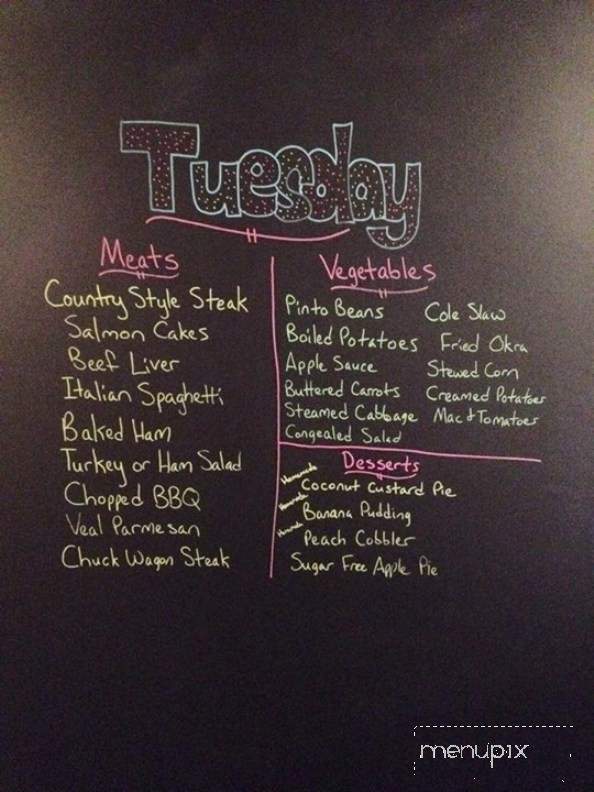 Tuesday
Meats
Country Style Steak
Salmon Cakes
Beef Liver
Italian Spaghetti
Baked Ham
Turkey or Ham Salad
Chopped BBQ
Veal Parmesan
Chuck Wagon Steak
Vegetables
Pinto Beans
Boiled Potatoes
Apple Sauce
Buttered Carrots
Steamed Cabbage
Congealed Salad
Cole Slaw
Fried Okra
Stewed Corn
Creamed Potatoes
Mac & Tomatoes
Desserts
Homemade Coconut Custard Pie
Homemade Banana Pudding
Homemade Peach Cobbler
Sugar Free Apple Pie
menupix